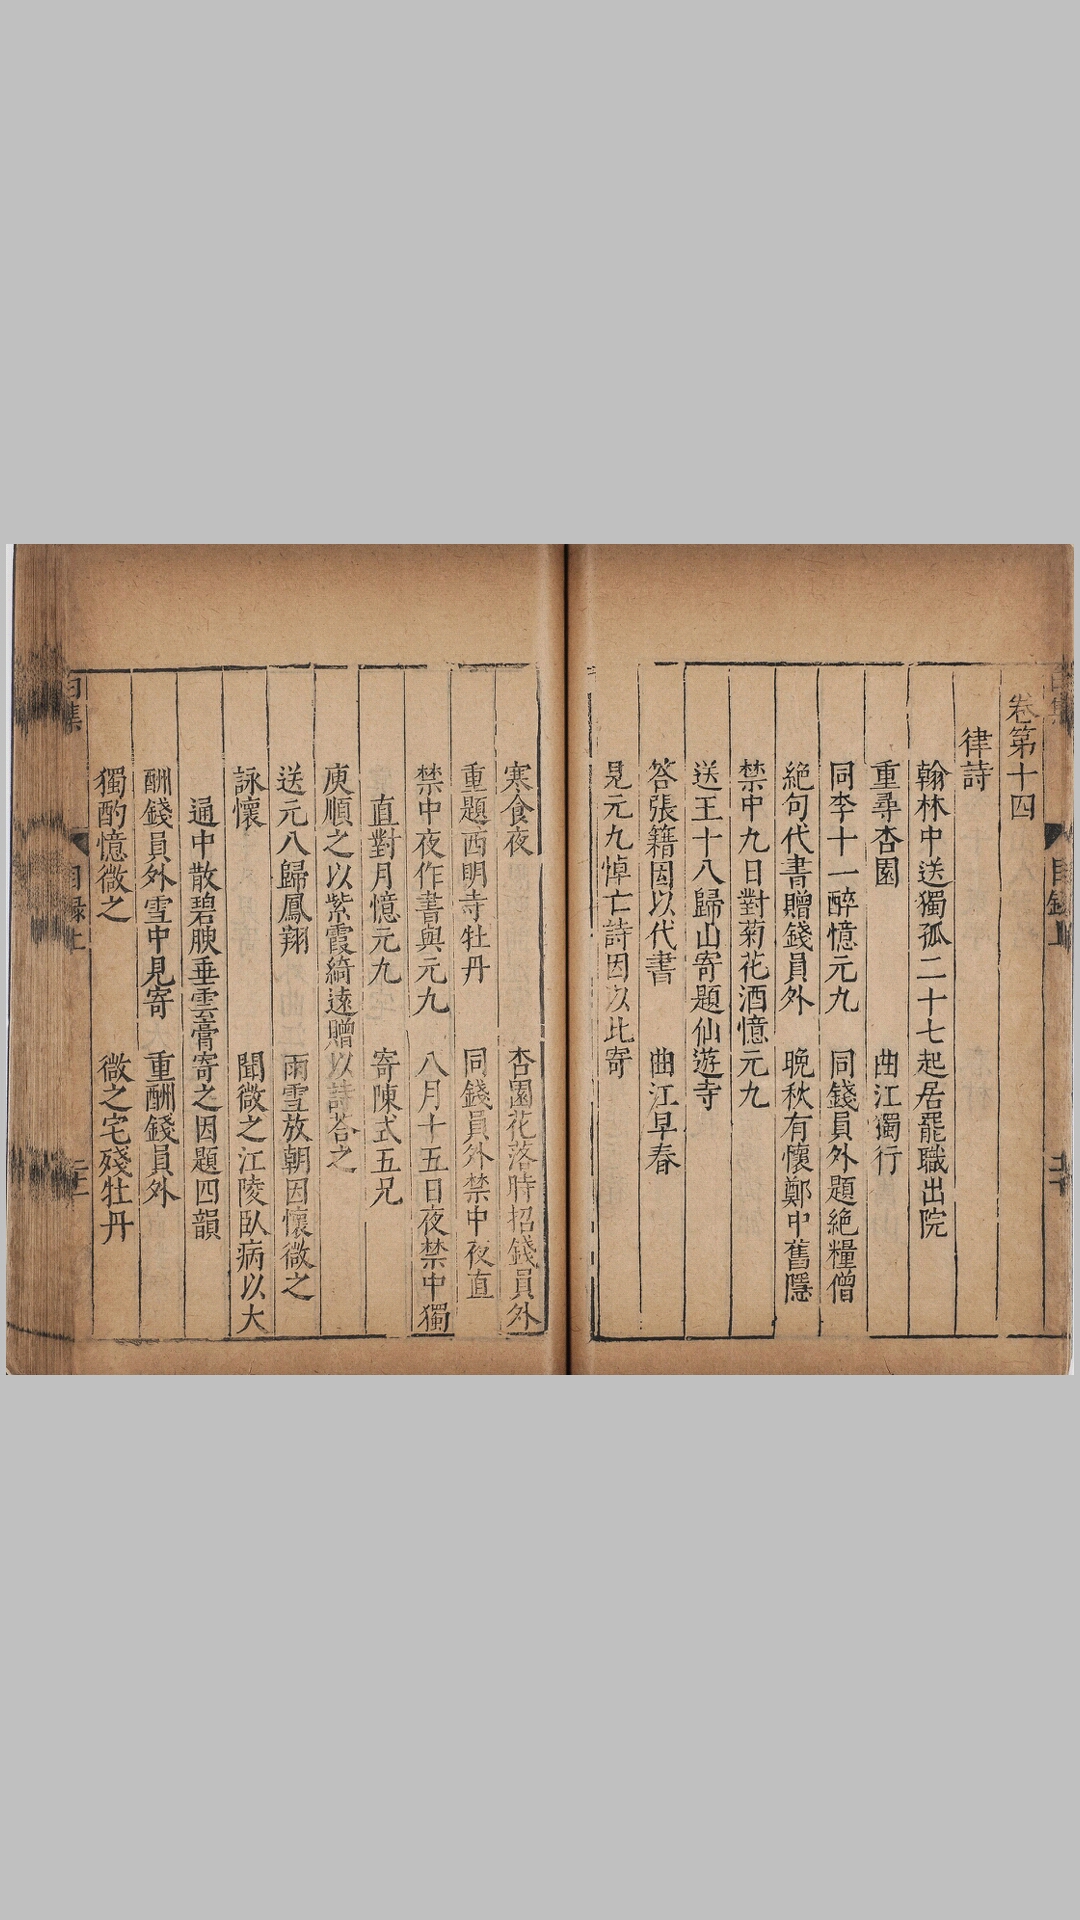 卷第十四
律詩
翰林中送獨孤二十七起居罷職出院
重尋杏園 曲江獨行
同李十一醉憶元九 同錢員外題絕糧僧
絕句代書贈錢員外 晚秋有懷鄭中舊隱
禁中九日對菊花酒憶元九
送王十八歸山寄題仙遊寺
答張籍因以代書 曲江早春
見元九悼亡詩因以此寄
寒食夜 杏園花落時招錢員外
重題西明寺牡丹 同錢員外禁中夜直
禁中夜作書與元九 八月十五日夜禁中獨
直對月憶元九 寄陳式五兄
庾順之以紫霞綺遠贈以詩荅之
送元八歸鳳翔 雨雪放朝因懷微之
詠懷 聞微之江陵臥病以大
通中散碧腴垂雲膏寄之因題四韻
酬錢員外雪中見寄 重酬錢員外
獨酌憶微之 微之宅殘牡丹
目錄上